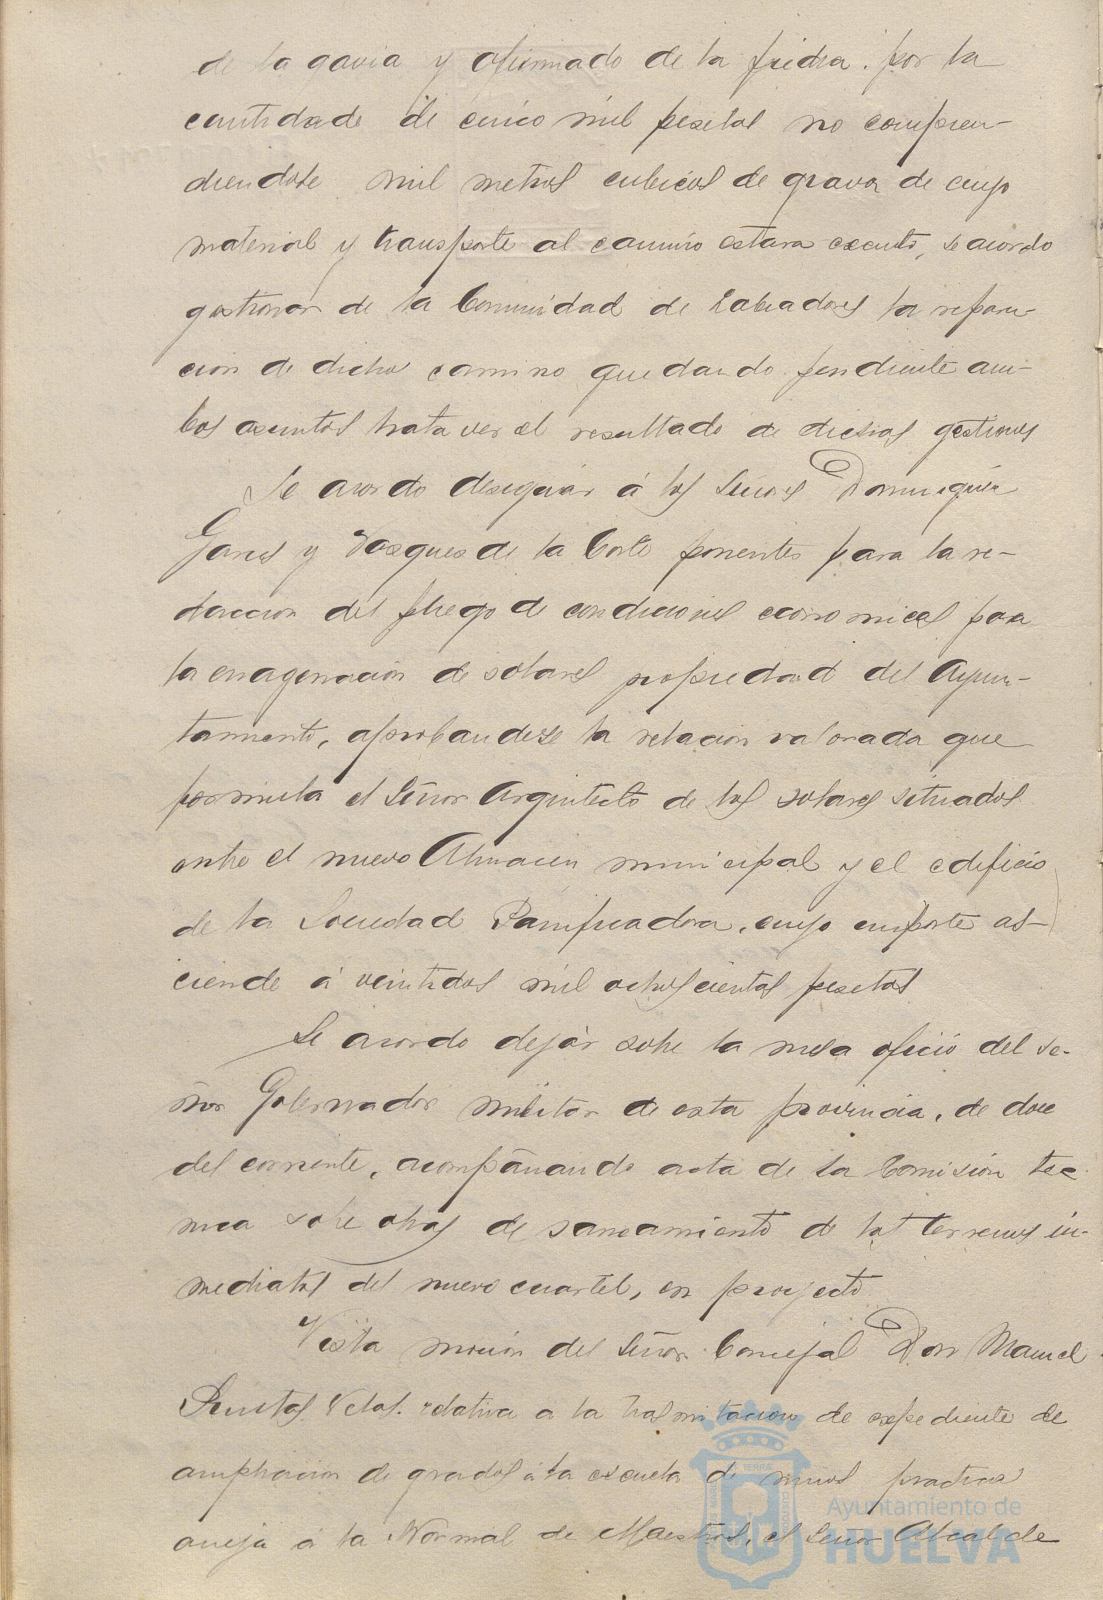 de la gavia y afirmado de la piedra. por la
cantidad de cinco mil pesetas no compren-
diendose mil metros cubicos de grava de cuyo
material y transporte al camino estara exento, se acordo
gestionar de la Comunidad de Labradores la repara-
cion de dicho camino quedando pendiente am-
bos asuntos hasta ver el resultado de dichas gestiones
Se acordo desiguar á los Señores Dominguez
Garcés y Vazquez de la Corte ponentes para la re-
daccion del pliego de condiciones economicas para
la enagenación de solares propiedad del Ayun-
tamiento, aprobandose la relacion valorada que
formula el Señor Arquitecto de los solares situados
entre el nuevo Almacen municipal y el edificio
de la Sociedad Panificadora, cuyo importe as-
ciende á veintidos mil ochoscientas pesetas
Se acordo dejár sobre la mesa oficio del Se-
ñor Gobernador militar de esta provincia, de doce
del corriente, acompañando acta de la Comisión tec-
nica sobre obras de saneamiento de los terrenos in-
mediatos del nuevo cuartel, en proyecto
Vista moción del Señor Concejal Don Manuel
relativa a la tramitacion de expediente de
ampliacion de grados á la escuela de niños practica
aneja á la Normal de Maestros, el Señor Alcalde
Ayuntamiento de
HUELVA